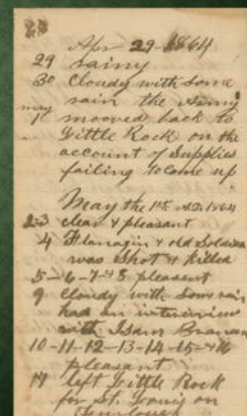 Apr 29-1864
29 rainy
30 cloudy with some
rain the Army
may 1st mooved back to
Little Rock on the
account of Supplies
failing to come up
May the 1st AD. 1864
2-3 clear & pleasant
4 Flanagin & old Soldier
was shot & killed
5-6-7-8 pleasant
9 cloudy with som rain
had an interview
with Isam
10-11-12-13-14-15-&16
pleasant
17 left Little Rock
for St. Louis on